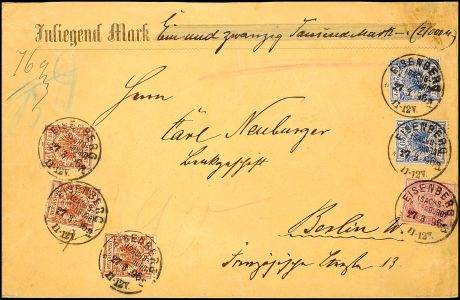 Inliegend Mark Ein und zwanzig Tausend Mark (21000 M)
Herrn
Carl Neuburger
Bankgeschäft
Berlin W.
Französische Straße 13
EISENBERG
(SACHS.-
27 3 96
11-12V.
EISENBERG
(SACHS.-
27 3 96
11-12V.
EISENBERG
(SACHS.-
27 3 96
11-12V.
EISENBERG
27 3 96
11-12V.
EISENBERG
27 3 96
11-12V.
EISENBERG
27 3 96
11-12V.